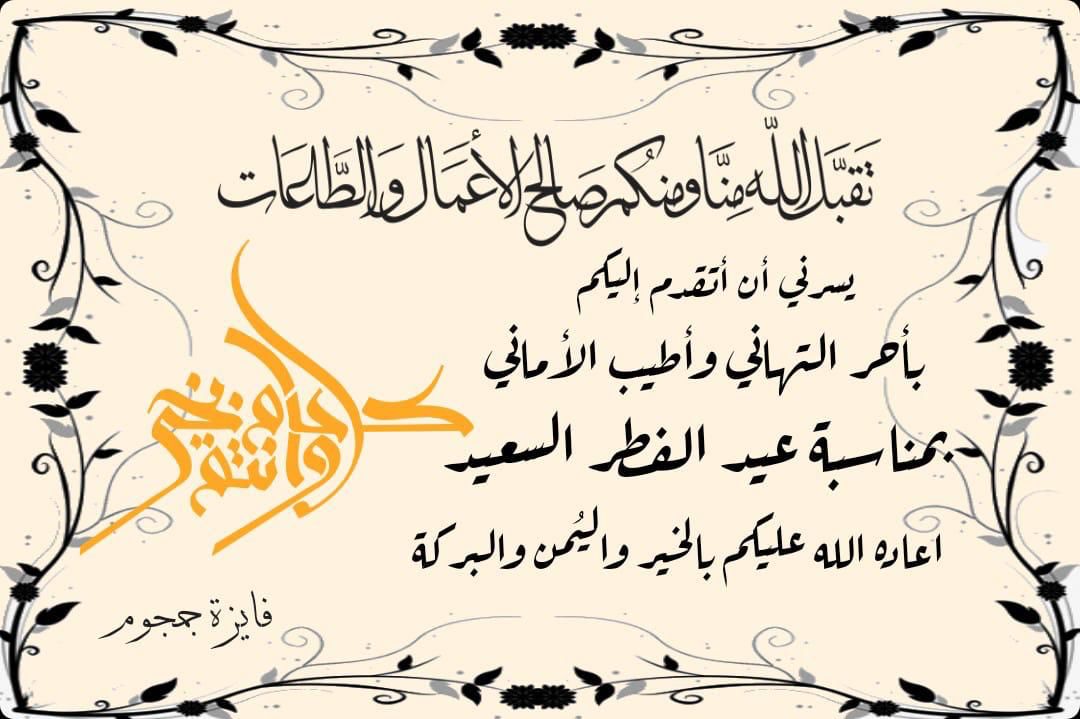 تَقَبَّلَ اللّٰه مِنَّا ومنكُم صَالح الأعْمَال وَالطَّاعَات
يسرني أن أتقدم إليكم
بأحر التهاني وأطيب الأماني
بمناسبة عيد الفطر السعيد
اعاده الله عليكم بالخير واليُمن والبركة
كل عام وانتم بخير
فايزة جمجوم